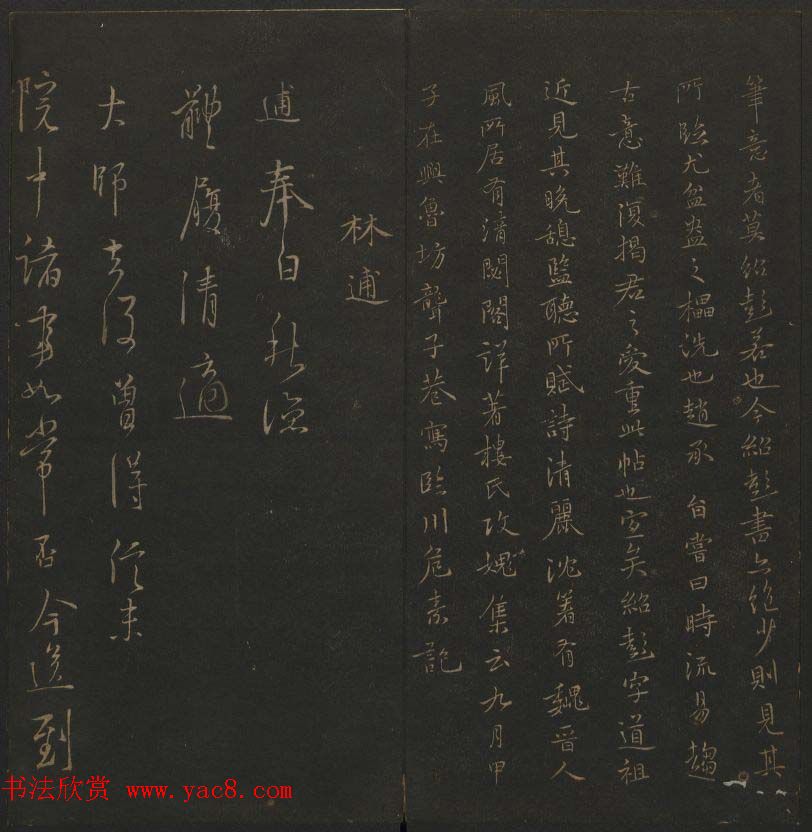 筆意者莫紹彭若也今紹彭書亦絶少則見其
所臨尤盆盎之櫑洗也趙承旨嘗曰時流易趨
古意難復揭君之愛重此帖也宜矣紹彭字道祖
近見其晚憩監聽所賦詩清麗沈著有魏晉人
風所居有清閟閣詳著樓氏攻媿集云九月甲
子在興魯坊聾子巷寓臨川危素記
林逋
逋奉白秋涼
體履清適
大師去後曾得信未
院中諸事如常否今送到
书法欣赏 www.yac8.com